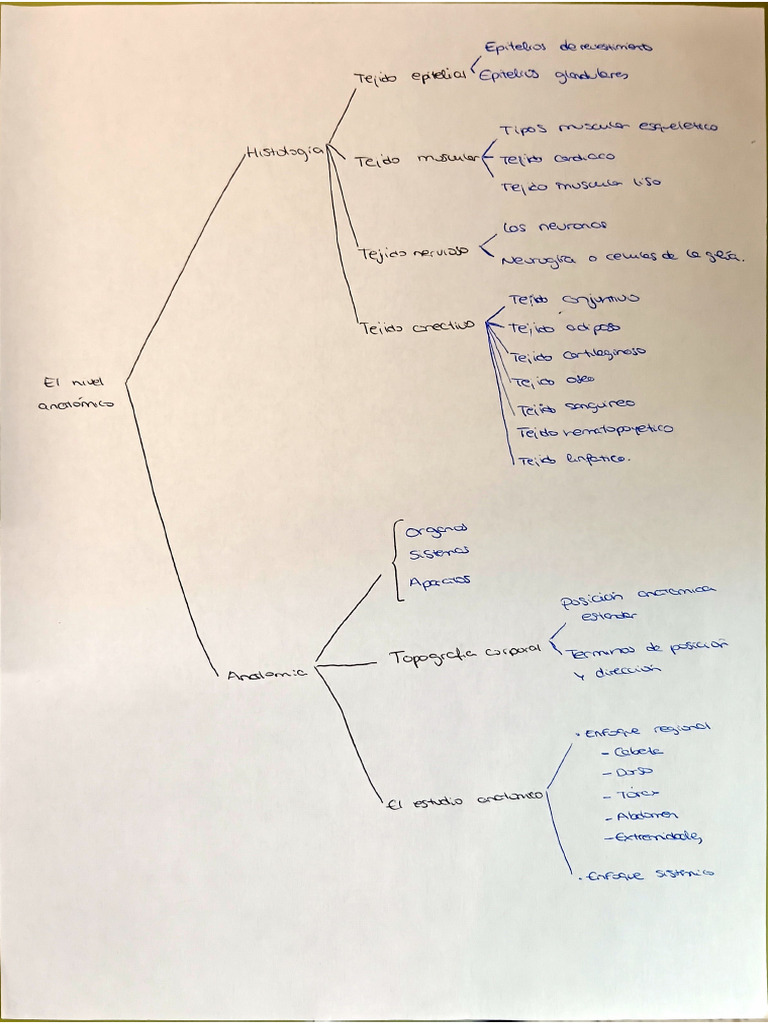 El nivel
anatómico
Histología
Tejido epitelial
Epitelios de revestimiento
Epitelios glandulares
Tejido muscular
Tipos muscular esquelético
Tejido cardiaco
Tejido muscular liso
Tejido nervioso
Las neuronas
Neurogira o celulas de la glía.
Tejido conectivo
Tejido conjuntivo
Tejido adiposo
Tejido cartilaginoso
Tejido oseo
Tejido sanguineo
Tejido hematopoyetico
Tejido linfatico.
Anatomia
Organos
Sistemas
Aparatos
Topografia corporal
Posición anatomica
estandar
Terminos de posición
y dirección
El estudio anatomico
. Enfoque regional
- Cabeza
- Dorso
- Tórax
- Abdomen
- Extremidades
. Enfoque sistémico